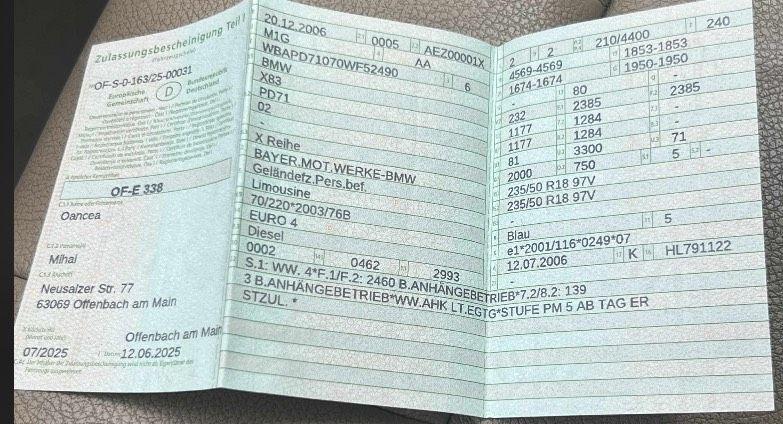 Zulassungsbescheinigung Teil I
(Fahrzeugschein)
OF-S-0-163/25-00031
Europäische
Gemeinschaft
D
Bundesrepublik
Deutschland
OF-E 338
Oancea
Mihai
Neusalzer Str. 77
63069 Offenbach am Main
Offenbach am Main
07/2025
12.06.2025
20.12.2006 0005 AEZ00001X
M1G AA
WBAPD71070WF52490 6
BMW
X83
PD71
02
-
X Reihe
BAYER.MOT.WERKE-BMW
Geländefz.Pers.bef.
Limousine
70/220*2003/76B
EURO 4
Diesel
0002 0462 2993
S.1: WW. 4*F.1/F.2: 2460 B.ANHÄNGEBETRIEB*7.2/8.2: 139
3 B.ANHÄNGEBETRIEB*WW.AHK LT.EGTG*STUFE PM 5 AB TAG ER
STZUL. *
2 2 210/4400 240
4569-4569 1853-1853
1674-1674 1950-1950
- 80 -
232 2385 2385
1177 1284 -
1177 1284 -
81 3300 71
2000 750 5 -
235/50 R18 97V
235/50 R18 97V
-
Blau 5
e1*2001/116*0249*07
12.07.2006 K HL791122
-